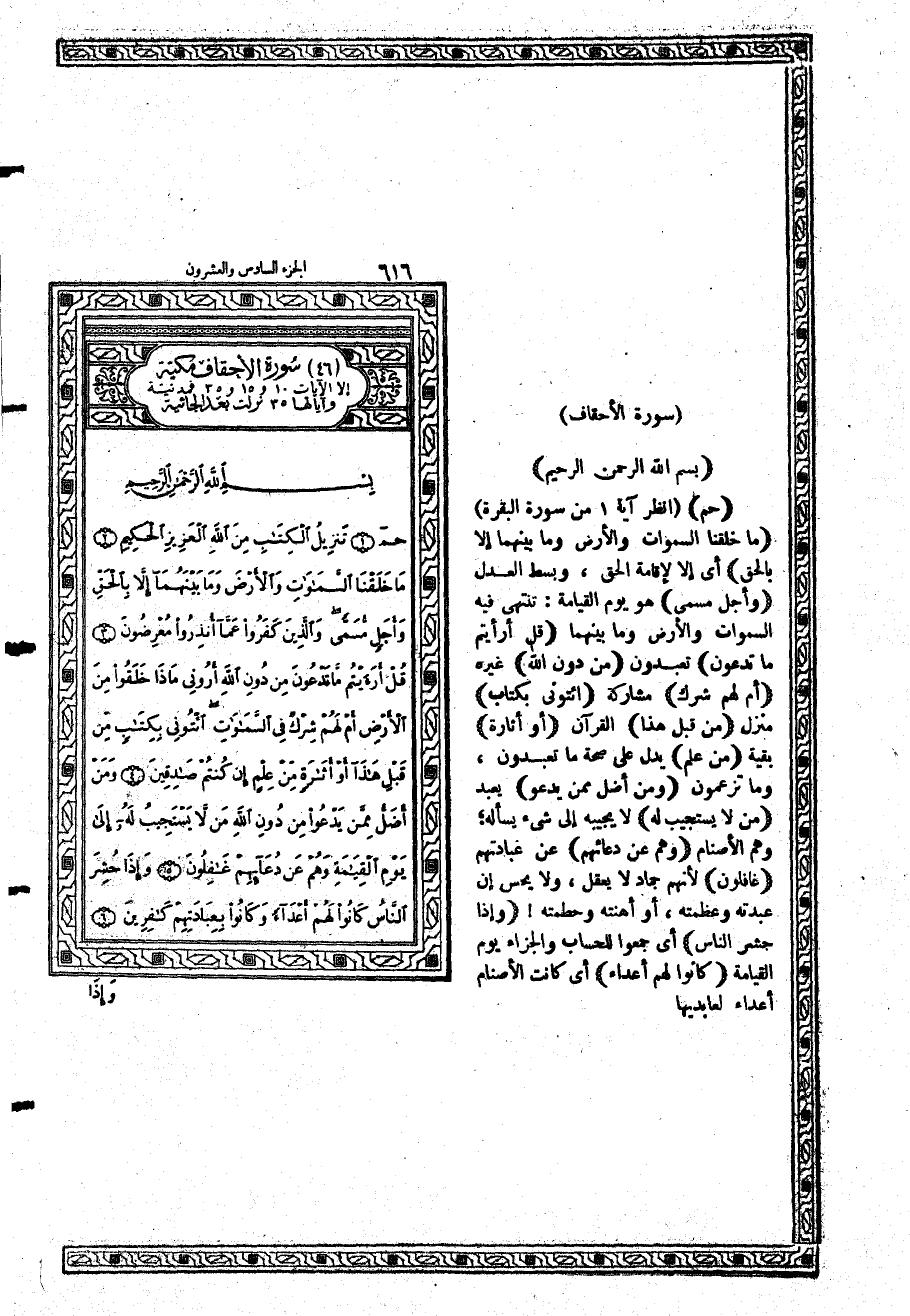 ٦١٦
الجزء السادس والعشرون
(٤٦) سورة الأحقاف مكية
إلا الآيات ١٠ و ١٥ و ٣٥ فمدنية
وآياتها ٣٥ نزلت بعد الجاثية
بِسْمِ اللَّهِ الرَّحْمَٰنِ الرَّحِيمِ
حمٓ ۝١ تَنزِيلُ الْكِتَٰبِ مِنَ اللَّهِ الْعَزِيزِ الْحَكِيمِ ۝٢
مَا خَلَقْنَا السَّمَٰوَٰتِ وَالْأَرْضَ وَمَا بَيْنَهُمَآ إِلَّا بِالْحَقِّ
وَأَجَلٍ مُّسَمًّى ۖ وَالَّذِينَ كَفَرُوا۟ عَمَّآ أُنذِرُوا۟ مُعْرِضُونَ ۝٣
قُلْ أَرَءَيْتُم مَّا تَدْعُونَ مِن دُونِ اللَّهِ أَرُونِى مَاذَا خَلَقُوا۟ مِنَ
الْأَرْضِ أَمْ لَهُمْ شِرْكٌ فِى السَّمَٰوَٰتِ ۖ ائْتُونِى بِكِتَٰبٍ مِّن
قَبْلِ هَٰذَآ أَوْ أَثَٰرَةٍ مِّنْ عِلْمٍ إِن كُنتُمْ صَٰدِقِينَ ۝٤ وَمَنْ
أَضَلُّ مِمَّن يَدْعُوا۟ مِن دُونِ اللَّهِ مَن لَّا يَسْتَجِيبُ لَهُۥٓ إِلَىٰ
يَوْمِ الْقِيَٰمَةِ وَهُمْ عَن دُعَآئِهِمْ غَٰفِلُونَ ۝٥ وَإِذَا حُشِرَ
النَّاسُ كَانُوا۟ لَهُمْ أَعْدَآءً وَكَانُوا۟ بِعِبَادَتِهِمْ كَٰفِرِينَ ۝٦
وَإِذَا
(سورة الأحقاف)
(بسم الله الرحمن الرحيم)
(حم) (انظر آية ١ من سورة البقرة)
(ما خلقنا السموات والأرض وما بينهما إلا
بالحق) أى إلا لإقامة الحق ، وبسط العدل
(وأجل مسمى) هو يوم القيامة : تنتهى فيه
السموات والأرض وما بينهما (قل أرأيتم
ما تدعون) تعبدون (من دون الله) غيره
(أم لهم شرك) مشاركة (ائتونى بكتاب)
منزل (من قبل هذا) القرآن (أو أثارة)
بقية (من علم) يدل على صحة ما تعبدون ،
وما تزعمون (ومن أضل ممن يدعو) يعبد
(من لا يستجيب له) لا يجيبه إلى شىء يسأله؛
وهم الأصنام (وهم عن دعائهم) عن عبادتهم
(غافلون) لأنهم جماد لا يعقل ، ولا يحس إن
عبدته وعظمته ، أو أهنته وحطمته ! (وإذا
حشر الناس) أى جمعوا للحساب والجزاء يوم
القيامة (كانوا لهم أعداء) أى كانت الأصنام
أعداء لعابديها